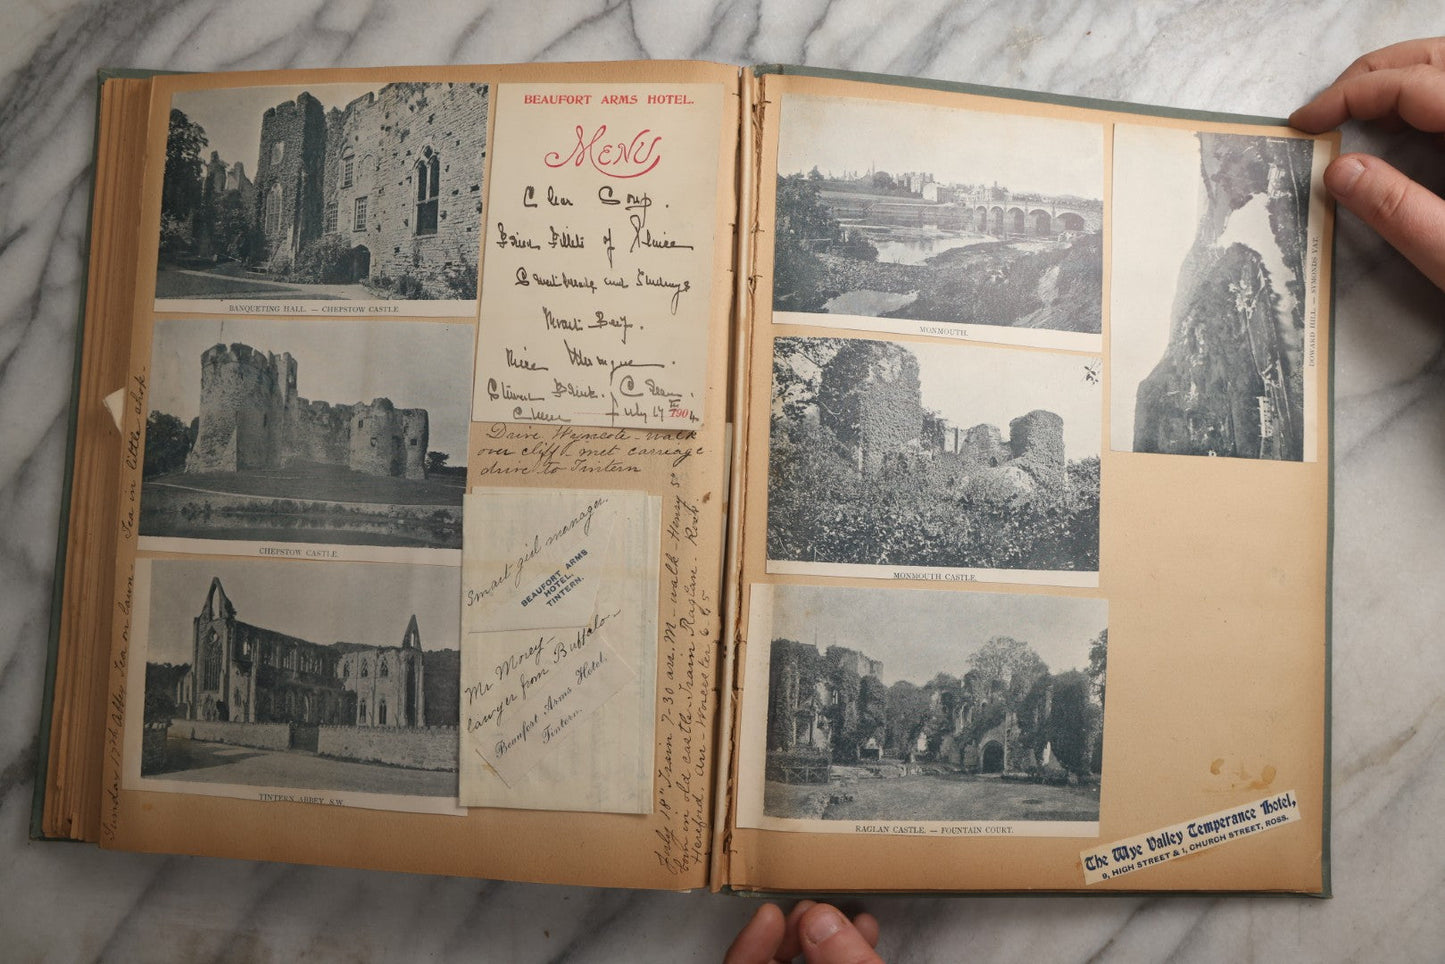 BANQUETING HALL. — CHEPSTOW CASTLE
CHEPSTOW CASTLE.
TINTERN ABBEY, S.W.
Sunday 17th Abbey Tea on lawn - Tea in little shop -
BEAUFORT ARMS HOTEL.
MENU
Clear Soup.
Fried Fillets of Plaice
Roast Beef.
Cream.
July 17 1904
Drive Wyncote - walk
over cliff - met carriage
drive to Tintern
Smart girl manager.
BEAUFORT ARMS
HOTEL,
TINTERN.
Mr Morey -
lawyer from Buffalo -
Beaufort Arms Hotel,
Tintern.
July 18" Train 7-30 arr. M - walk - Henry 5"
born in old castle. Train Raglan. Ross.
Hereford. arr - Worcester 6.45
MONMOUTH.
MONMOUTH CASTLE.
RAGLAN CASTLE. — FOUNTAIN COURT.
DOWARD HILL. — SYMONDS YAT.
The Wye Valley Temperance Hotel,
9, HIGH STREET & 1, CHURCH STREET, ROSS.